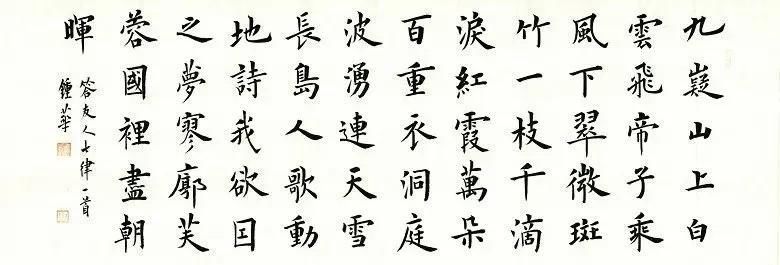 九嶷山上白
雲飛帝子乘
風下翠微斑
竹一枝千滴
淚紅霞萬朵
百重衣洞庭
波湧連天雪
長島人歌動
地詩我欲因
之夢寥廓芙
蓉國裡盡朝
暉
答友人七律一首
鍾華